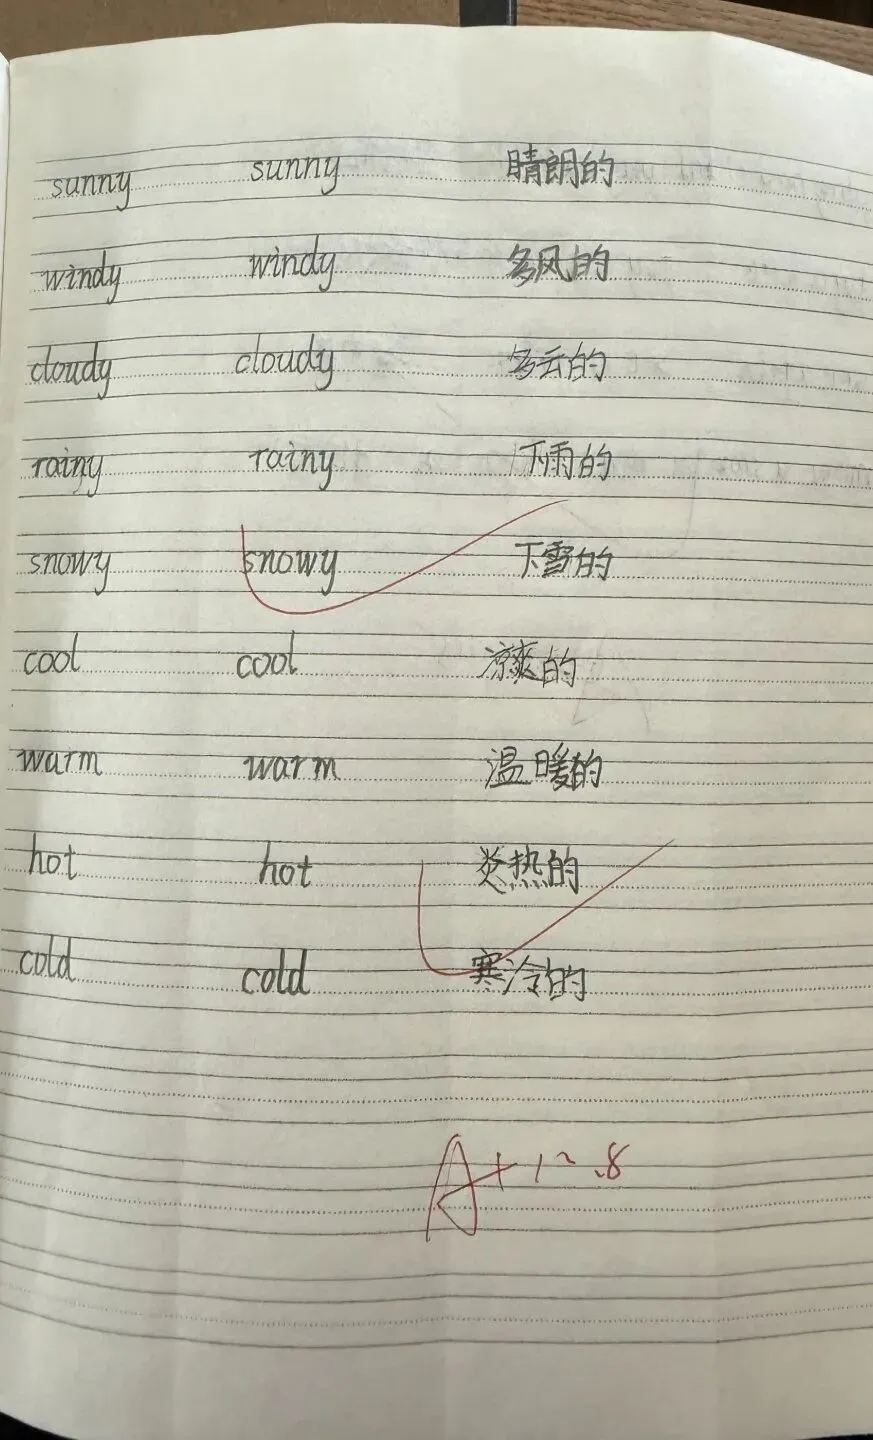 sunny sunny 晴朗的
windy windy 多风的
cloudy cloudy 多云的
rainy rainy 下雨的
snowy snowy 下雪的
cool cool 凉爽的
warm warm 温暖的
hot hot 炎热的
cold cold 寒冷的
A+ 12.8